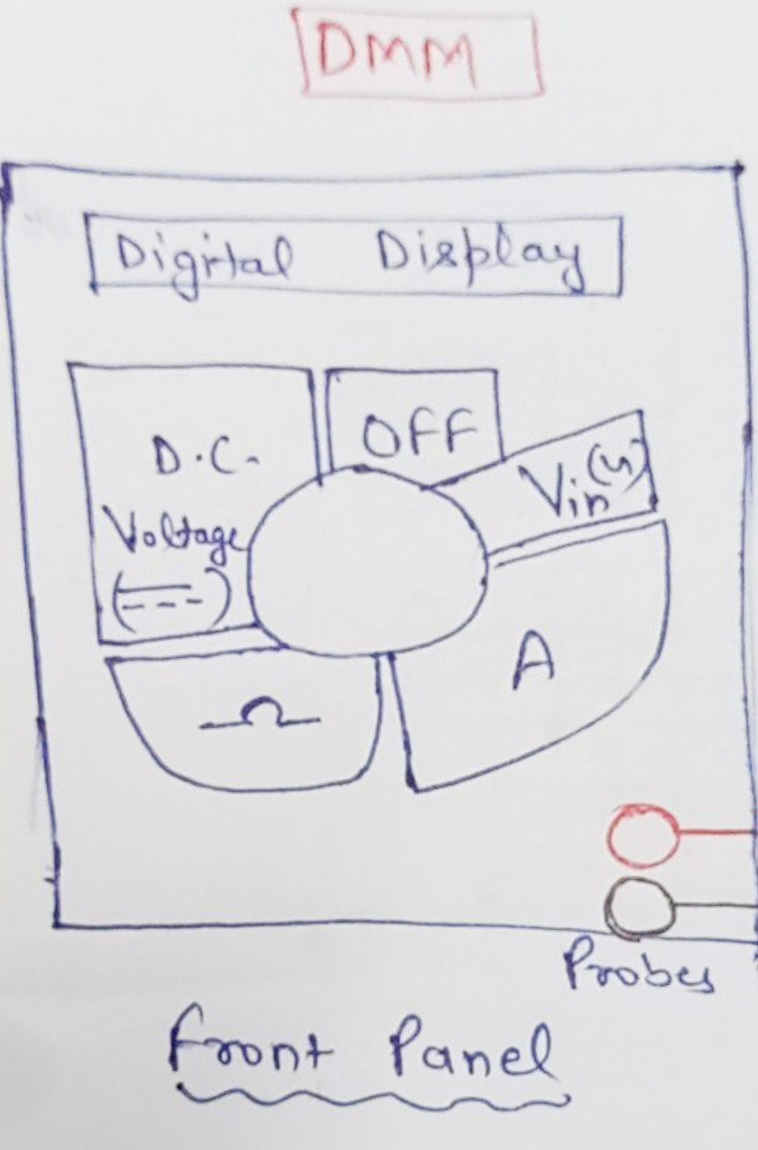 DMM
Digital Display
D.C.
Voltage
OFF
Vin(~)
Ω
A
Probes
Front Panel